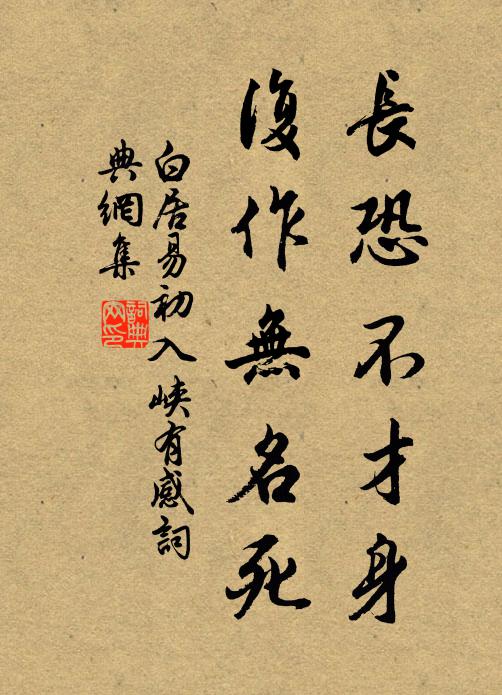 長恐不才身
復作無名死
白居易初入峽有感詞
典網集
詞典
网印